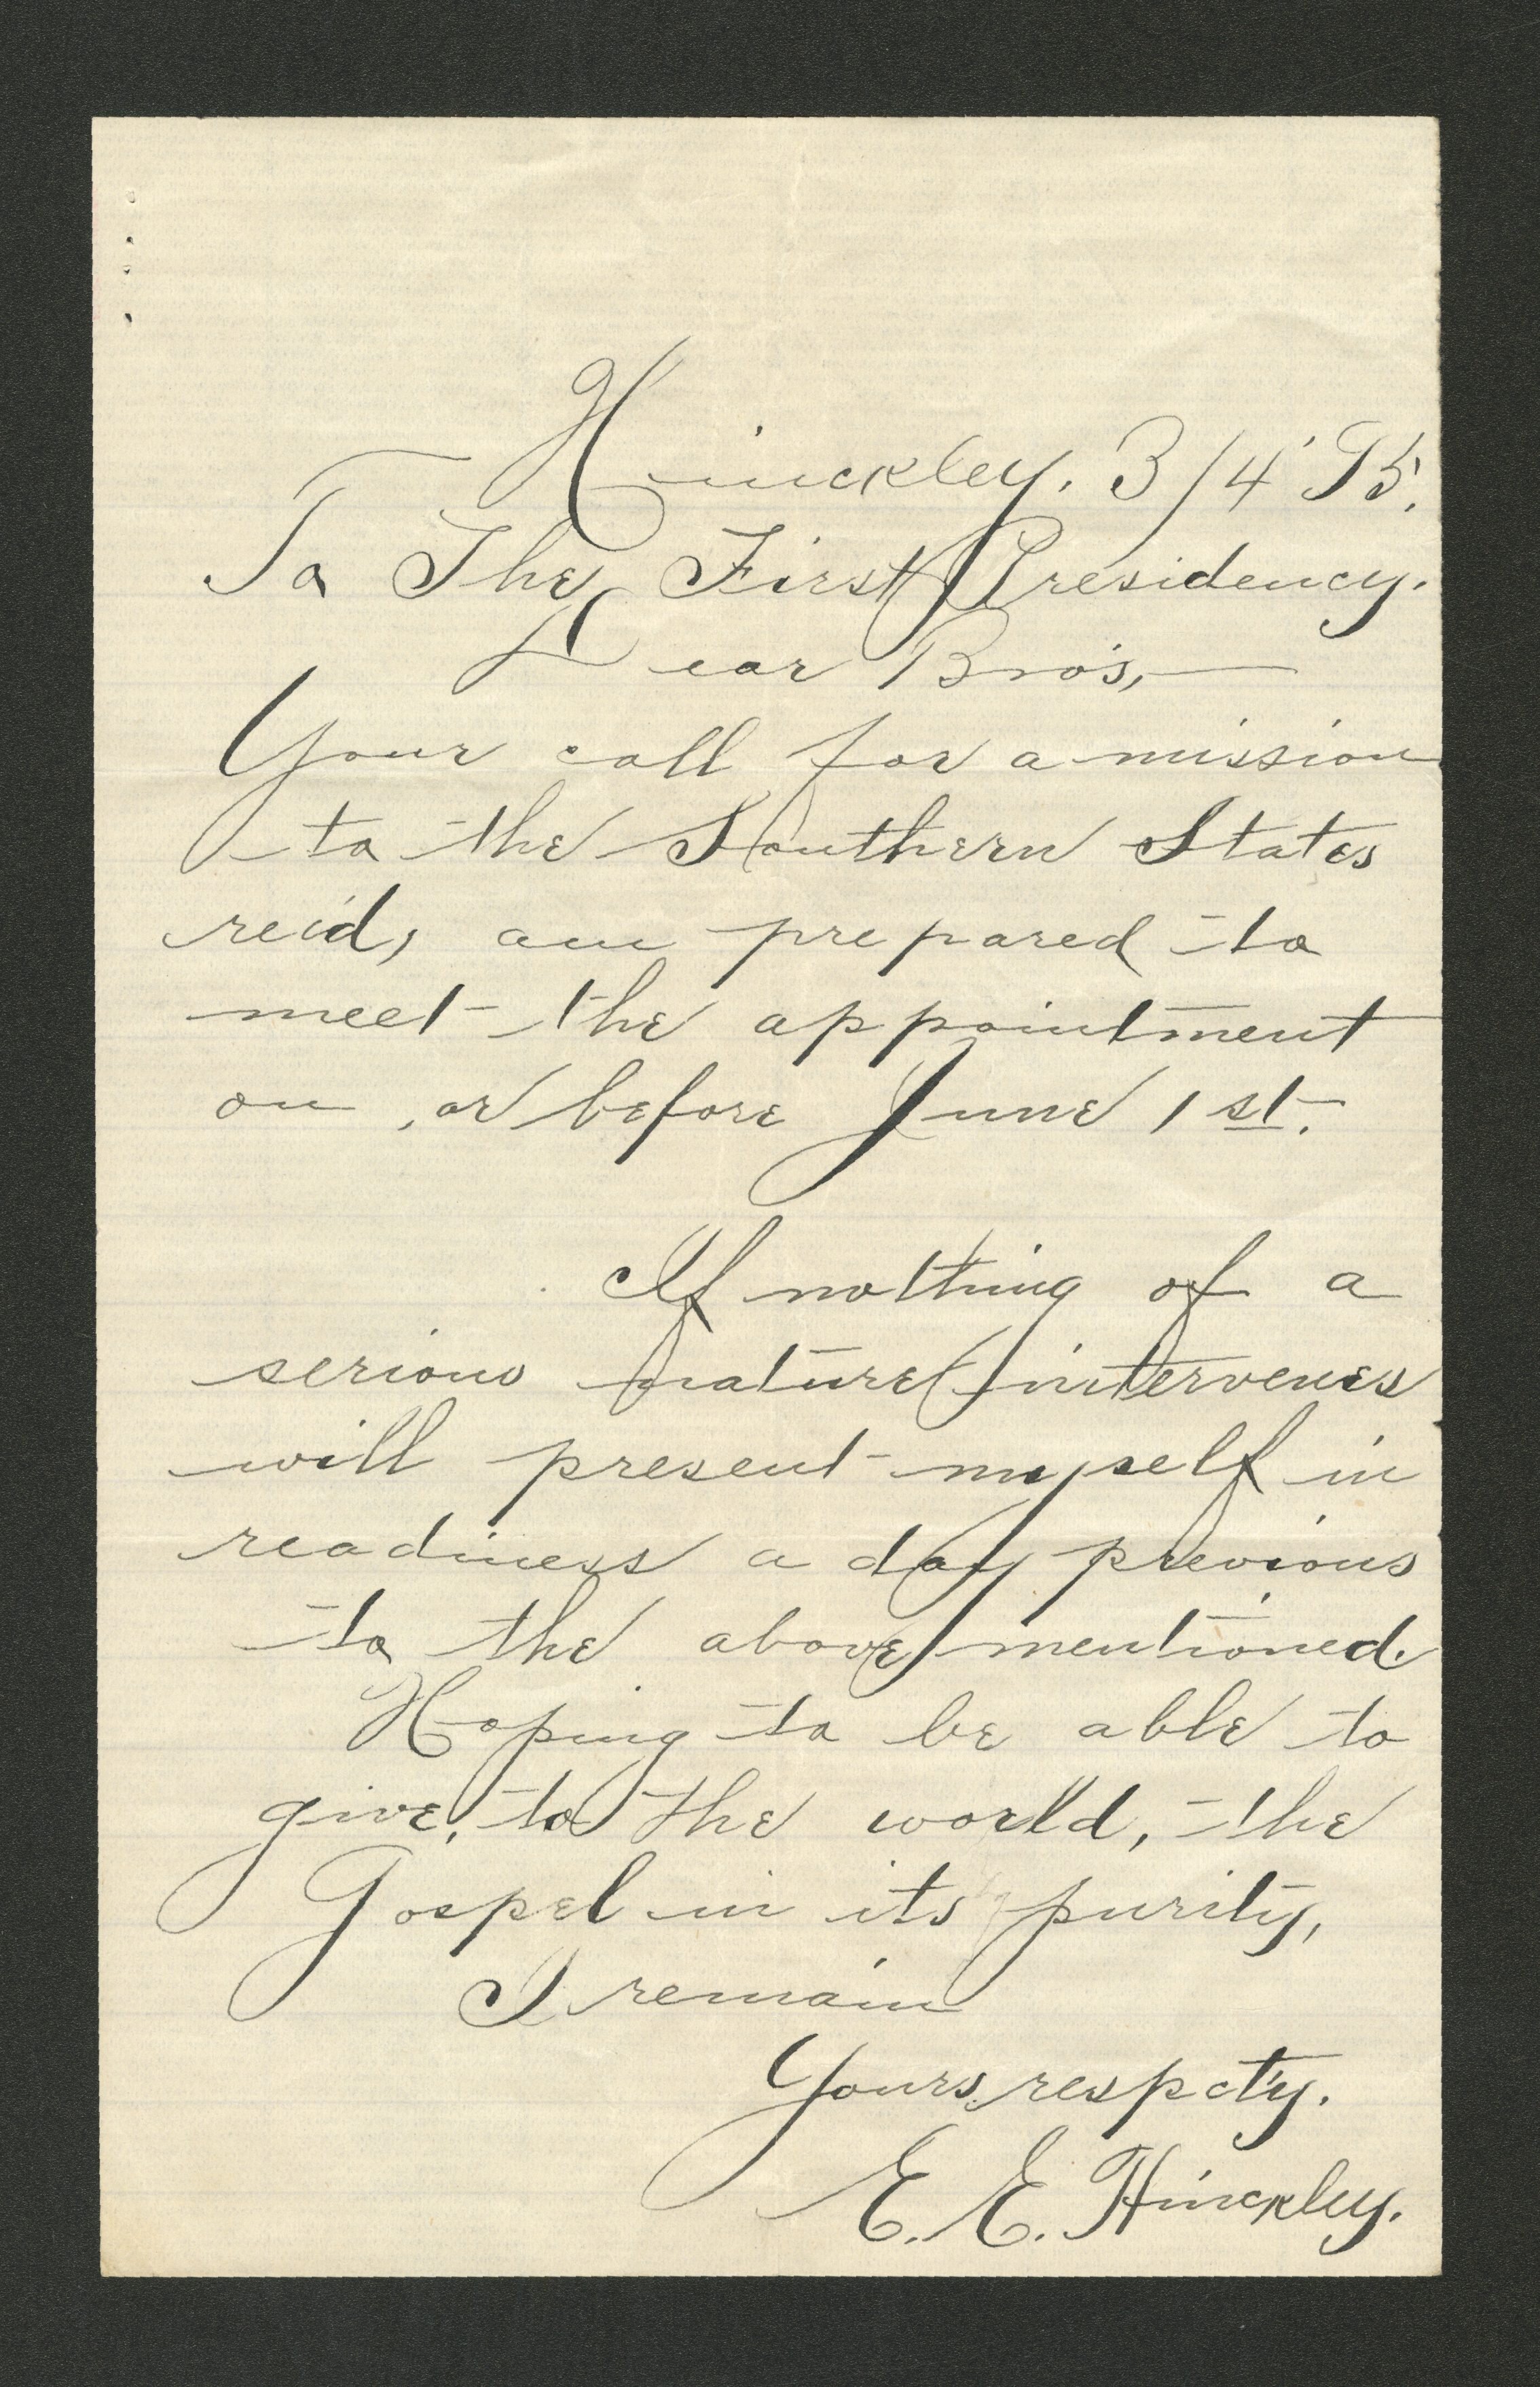 Hinckley. 3/4 '95.
To The First Presidency.
Dear Bro's,—
Your call for a mission
to the Southern States
rec'd, am prepared to
meet the appointment
on, or before June 1st.
If nothing of a
serious nature intervenes
will present myself in
readiness a day previous
to the above mentioned.
Hoping to be able to
give, to the world, the
Gospel in its purity,
I remain
Yours respct'y.
E. E. Hinckley.